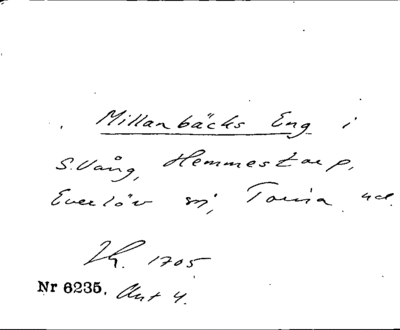 Millanbäcks Eng i
S. Vång, Hemmestorp,
Everlöv sn, Torna hd.
Lk. 1705
Nr 6235. Akt 4.